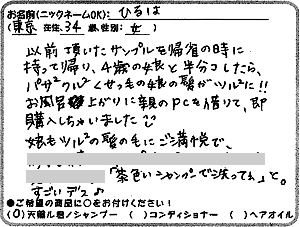 お名前(ニックネームOK): ひるは
(東京 在住、34歳、性別: 女 )
以前頂いたサンプルを帰省の時に
持って帰り、4歳の娘と半分コしたら、
パサ²クル²くせっ毛の娘の髪がツル²に!!
お風呂上がりに親のPCを借りて、即
購入しちゃいました
娘もツル²の髪の毛にご満悦で、
「茶色いシャンプーで洗ってぇ」と。
すごいデス♪
●ご希望の商品に○をお付けください!
(○)天鵝ル君ノシャンプー ( )コンディショナー ( )ヘアオイル